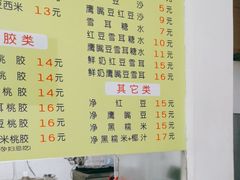 豆西米 13元
胶类
桃胶 14元
桃胶 14元
桃胶 14元
耳桃胶 16元
豆桃胶 16元
豆桃胶 16元
米桃胶 16元
豆沙 5元
红豆沙 9元
雪耳糖水 9元
红豆雪耳糖水 10元
鹰嘴豆雪耳糖水 10元
鲜奶红豆雪耳 11元
鲜奶鹰嘴豆雪耳 11元
其它类
净红豆 15元
净鹰嘴豆 15元
净黑糯米 15元
净黑糯米+椰汁 17元